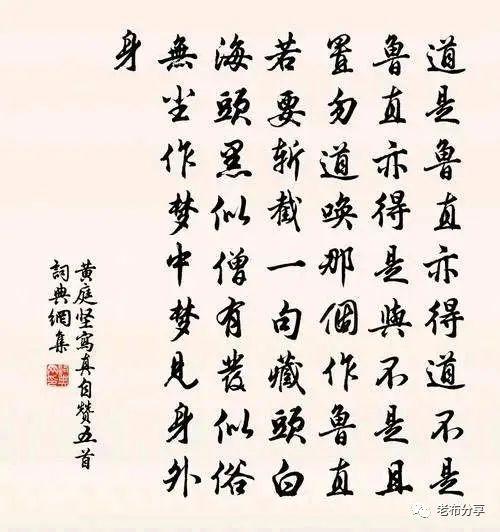 道是魯直亦得道不是
魯直亦得是與不是且
置勿道喚那個作魯直
若要斬截一句藏頭白
海頭黑似僧有發似俗
無尘作梦中梦见身外
身
黄庭坚寫真自赞五首
詞典網集
老布分享